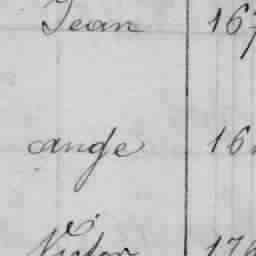 Jean 167
ange 16
Victor 176